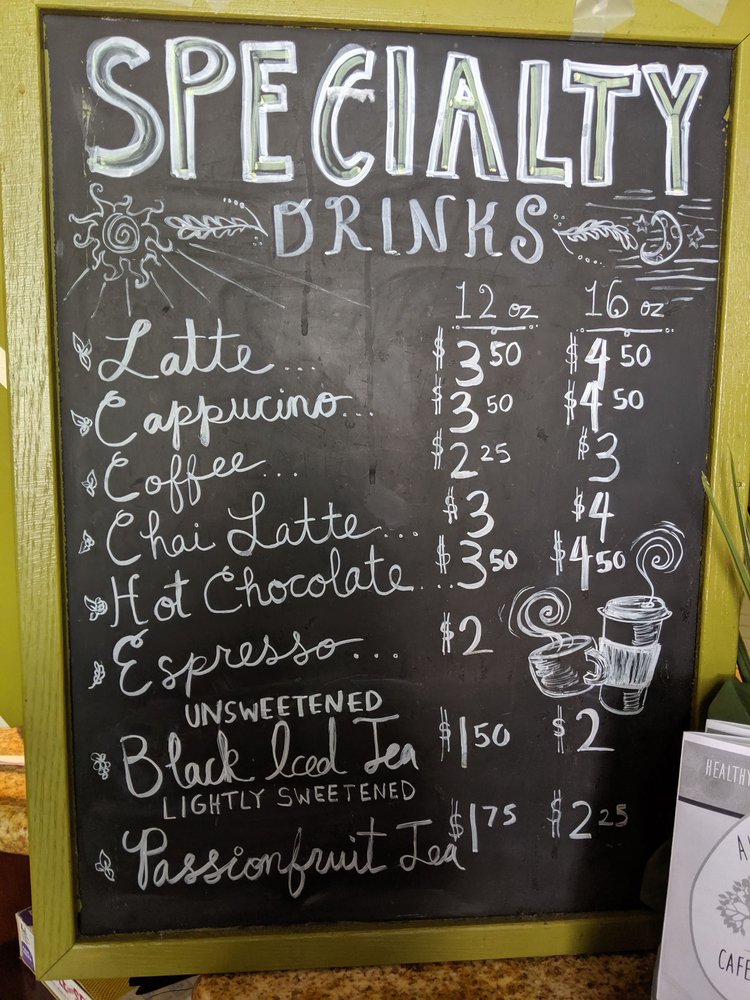 SPECIALTY
DRINKS
12 oz 16 oz
Latte... $3 50 $4 50
Cappucino... $3 50 $4 50
Coffee... $2 25 $3
Chai Latte... $3 $4
Hot Chocolate... $3 50 $4 50
Espresso... $2
UNSWEETENED
Black Iced Tea $1 50 $2
LIGHTLY SWEETENED
Passionfruit Tea $1 75 $2 25
HEALTHY
CAFE